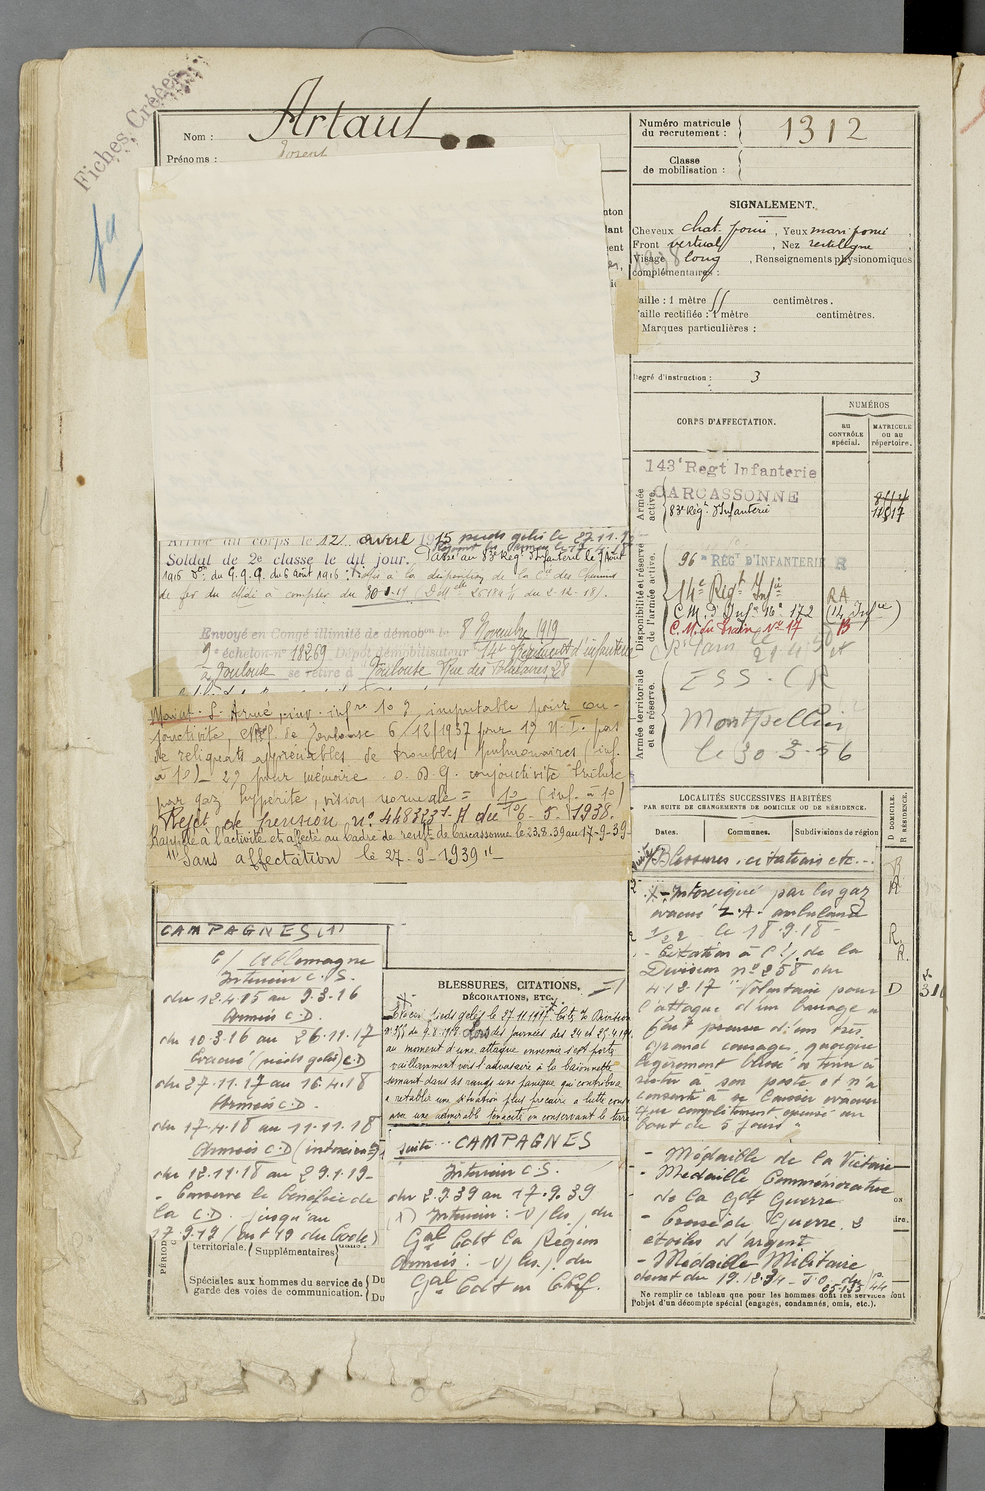 Fiches Créées
Nom : Artaut
Prénoms :
Numéro matricule
du recrutement : 1312
Classe
de mobilisation :
SIGNALEMENT.
Cheveux chat. foncé, Yeux mar. foncé,
Front vertical, Nez rectiligne
Visage long, Renseignements physionomiques
complémentaires :
Taille : 1 mètre centimètres.
Taille rectifiée : 1 mètre centimètres.
Marques particulières :
Degré d'instruction : 3
CORPS D'AFFECTATION.
NUMÉROS
au
CONTRÔLE
spécial.
MATRICULE
ou au
répertoire.
Armée
active.
143e Regt Infanterie
CARCASSONNE
83e Rég. d'Infanterie
Disponibilité et réserve
de l'armée active.
96e REGT D'INFANTERIE
14e Regt Infie
C.M. d'Infie 16e 172
C.M. du Train No 17
Armée territoriale
et sa réserve.
Montpellier
le 30 3-56
Arrivé au corps le 12 avril 1915 pieds gelés le 27.11.17
Soldat de 2e classe le dit jour. Passé au 83e Rég. d'Infanterie le
1916 du G.Q.G. du 6 août 1916 : à la disposition de la Cie des Chemins
de fer du Midi à compter du 30-1-19
Envoyé en Congé illimité de démobon le 8 Novembre 1919
9e échelon no 18269 Dépôt démobilisateur 14e Régiment d'infanterie
à Toulouse se retire à Toulouse Rue des Polinaires, 28
inf. 1o 2 imputable pour con-
jonctivite, de Toulouse 6/12/1937 pour 1o N.I. pas
de reliquats appréciables de troubles pulmonaires (inf.
à 10) 2o pour mémoire O. D. G. conjonctivite
par gaz hypérite, vision normale = 10 (inf. à 10)
Rejet de pension no 448323 du 16-5-1938.
Rappelé à l'activité et affecté au cadre de de Carcassonne le 23.8.39 au 17-9-39
"Sans affectation le 27-9-1939"
CAMPAGNES (1)
C/ Allemagne
Intérieur C.S.
du 12.4.15 au 9.3.16
Armées C.D.
du 10.3.16 au 26.11.17
Evacué (pieds gelés) C.D
du 27.11.17 au 16.4.18
Armées C.D.
du 17.4.18 au 11.11.18
Armées C.D (intérieur)
du 12.11.18 au 29.1.19
- Conserve le bénéfice de
la C.D. jusqu'au
17.9.19 (art 19 du Code)
territoriale. (Supplémentaires)
Spéciales aux hommes du service de
garde des voies de communication.
BLESSURES, CITATIONS,
DÉCORATIONS, ETC.
pieds gelés le 27.11.1917
des journées des 24 et 25.4.191
au moment d'une attaque ennemie s'est porté
vaillamment vers l'adversaire à la baïonnette
semant dans ses rangs une panique qui contribua
a rétablir une situation plus précaire a lutté
avec une admirable ténacité en conservant le
suite CAMPAGNES
Intérieur C.S.
du 2.9.39 au 17.9.39
(1) Intérieur : -v/ les / du
Gal Cdt la Région
Armées : -v/ les / du
Gal Cdt en Chef.
LOCALITÉS SUCCESSIVES HABITÉES
PAR SUITE DE CHANGEMENTS DE DOMICILE OU DE RÉSIDENCE.
Dates. Communes. Subdivisions de région
D DOMICILE.
R RÉSIDENCE.
Blessures, citations etc...
- Intoxiqué par les gaz
évacué Z.A. ambulance
le 18.9.18-
- Citation à l'O. de la
Division no 258 du
4.12.17 "Volontaire pour
l'attaque d'un barrage a
fait preuve d'un très
grand courage, quoique
légèrement blessé a tenu à
rester à son poste et n'a
consenti à se laisser évacuer
que complètement épuisé au
bout de 5 jours"
- Médaille de la Victoire
- Médaille Commémorative
de la Gde Guerre
- Croix de Guerre 2
étoiles d'argent
- Médaille Militaire
décret du 19.12.34
Ne remplir ce tableau que pour les hommes dont les services font
l'objet d'un décompte spécial (engagés, condamnés, omis, etc.).